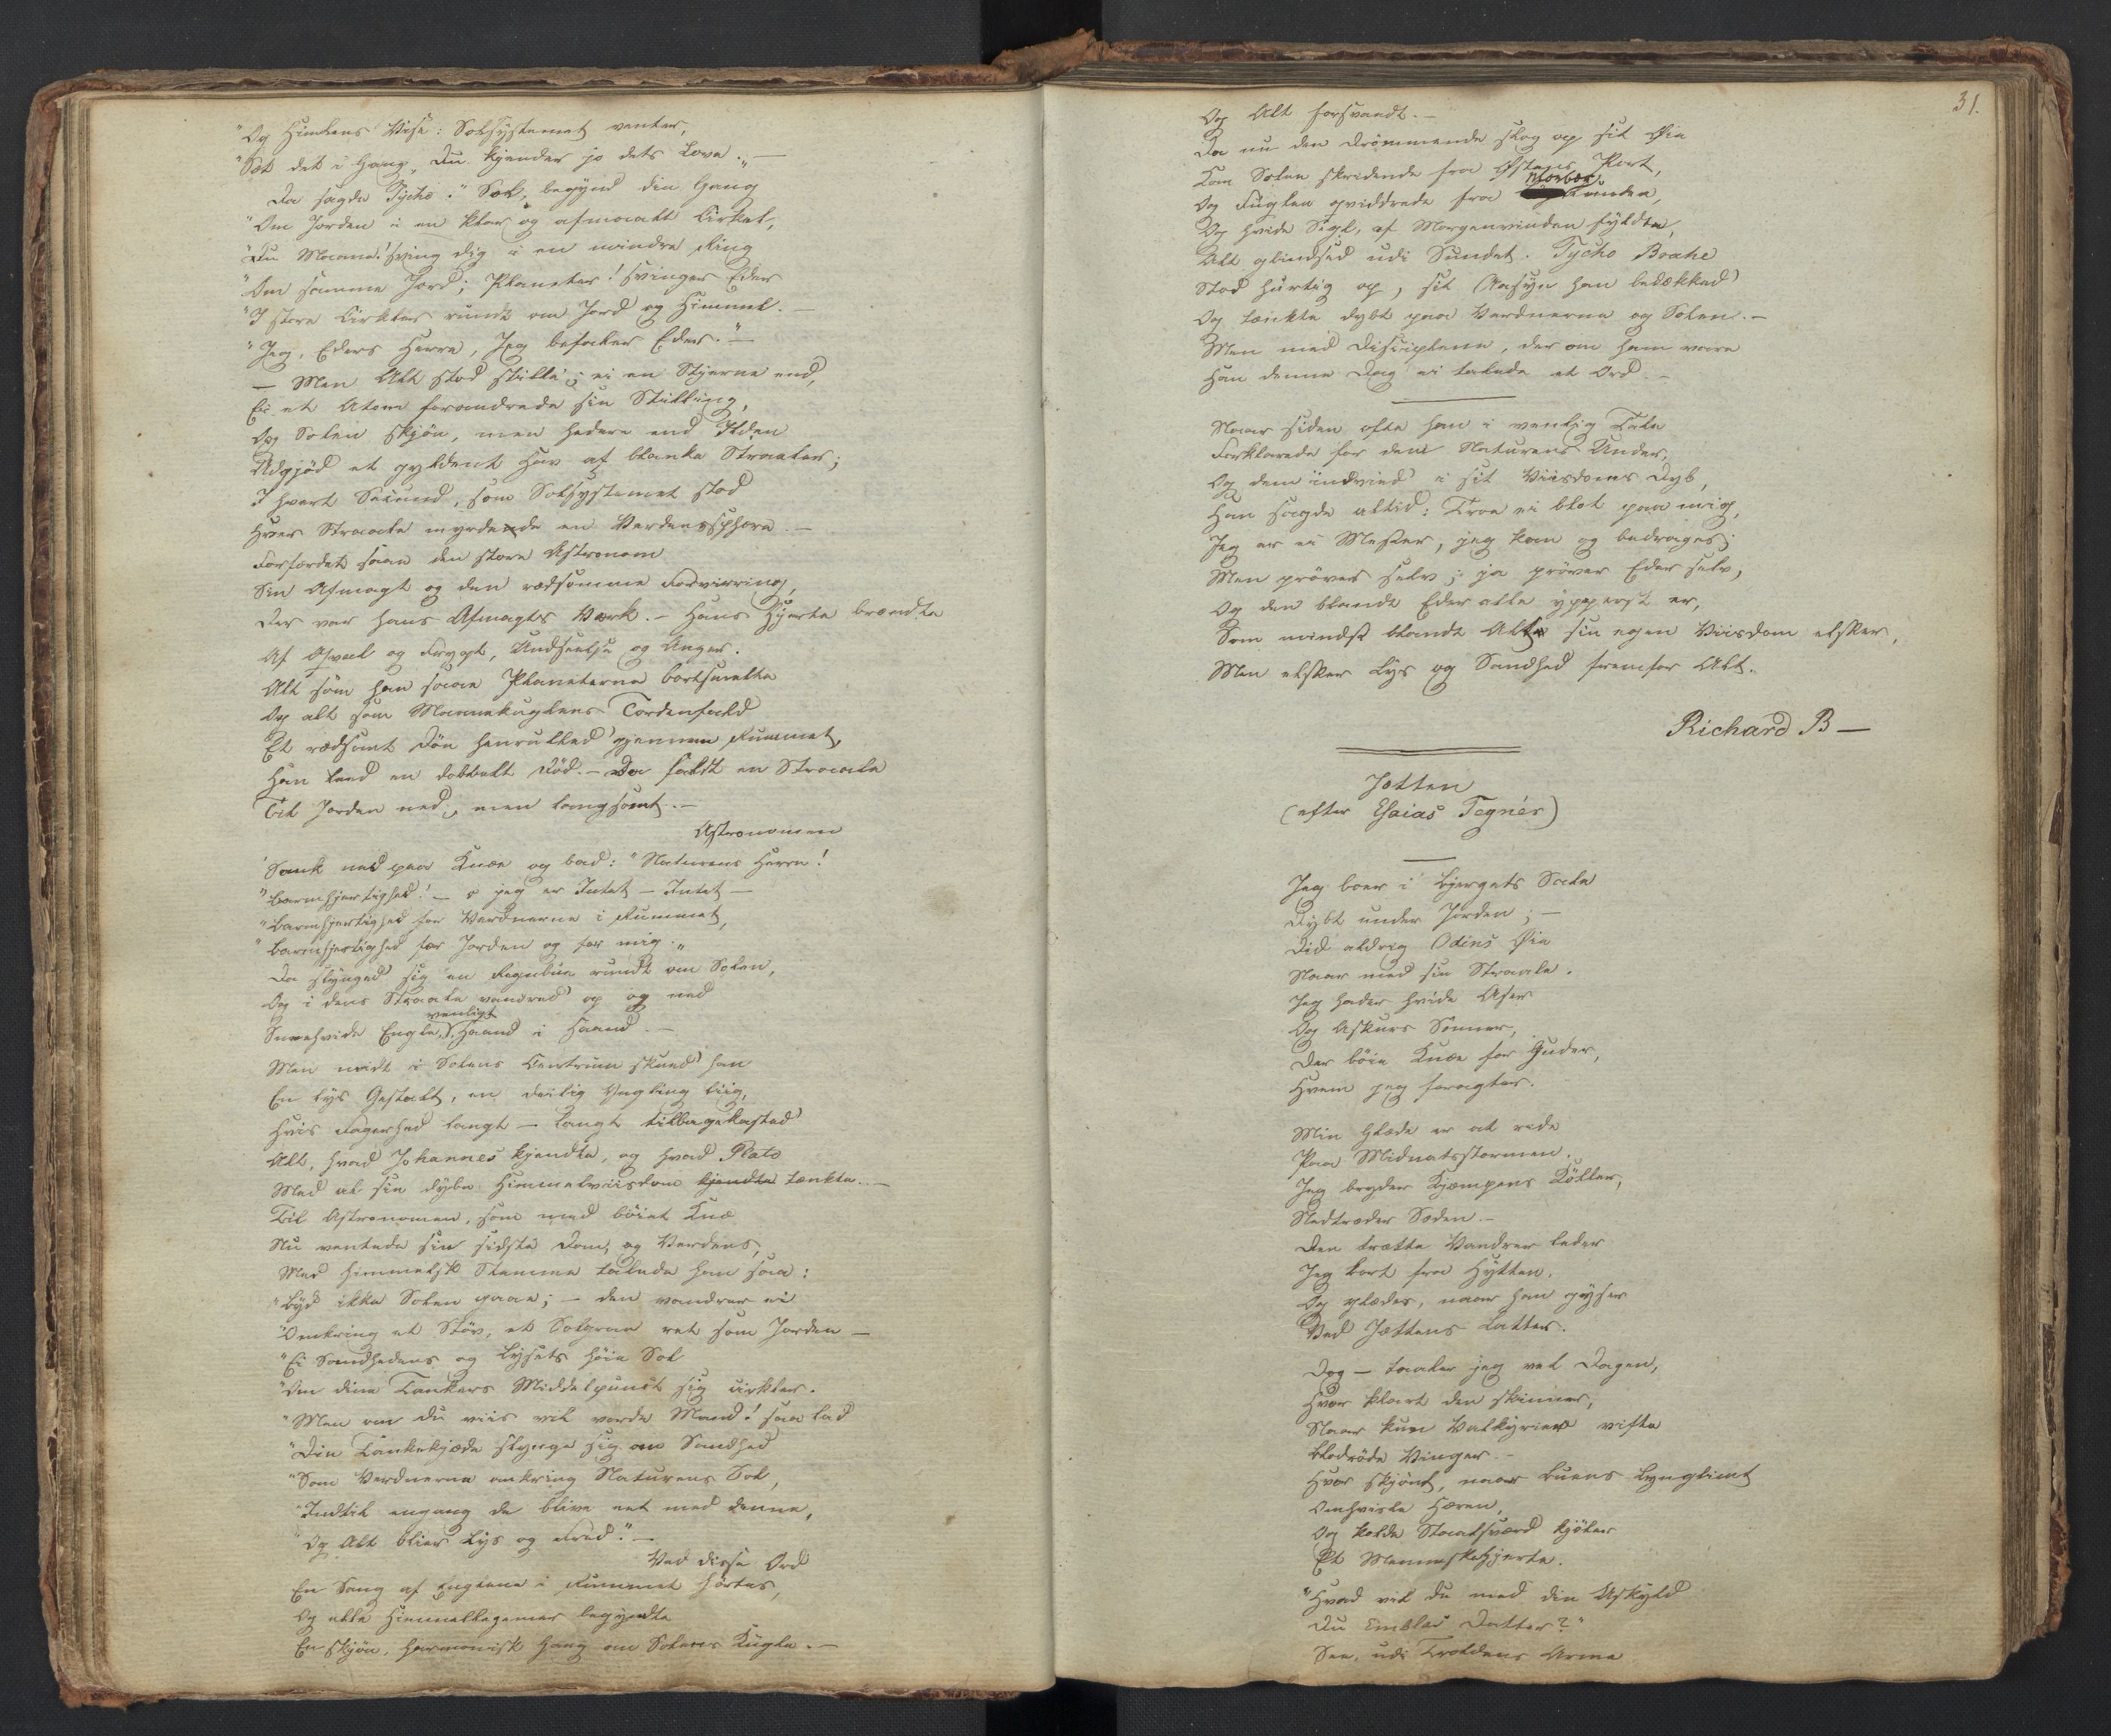 "Og Himlens Vise: Solsystemet venter,
"Sæt det i Gang, Du kjender jo dets Love." —
Da sagde Tycho: "Sol, begynd din Gang
"Om Jorden i en klar og afmaalt Cirkel,
"Du Maane! sving dig i en mindre Ring
"Om samme Jord; Planeter! svinger Eder
"I store Cirkler rundt om Jord og Himmel. —
"Jeg, Eders Herre, Jeg befaler Eder." —
— Men Alt stod stille; ei en Stjerne end,
Ei et Atom forandrede sin Stilling,
Og Solen skjøn, men hedere end Ilden
Udgjød et gyldent Hav af blanke Straaler;
I hvert Secund, som Solsystemet stod
Hver Straale myrdede en Verdenssphære. —
Forfærdet saae den store Astronom
Sin Afmagt og den rædsomme Forvirring,
Der var hans Afmagts Værk. — Hans Hjerte brændte
Af Qval og Frygt, Undseelse og Anger.
Alt som han saae Planeterne bortsmelte
Og alt som Maanekuglens Tordenfald
Et rædsomt Døn henrulled' gjennem Rummet,
Han leed en dobbelt Død. — Da faldt en Straale
Til Jorden ned, men langsomt. —
Astronomen
Sank ned paa Knæe og bad: "Naturens Herre!
"Barmhjertighed! — o jeg er Intet — Intet —
"Barmhjertighed for Verdnerne i Rummet,
"Barmhjertighed for Jorden og for mig."
Da slynged' sig en Regnbue rundt om Solen,
Og i dens Straale vandred' op og ned
venligt
Sneehvide Engle, Haand i Haand. —
Men midt i Solens Centrum skued' han
En lys Gestalt, en deilig Yngling liig,
Hvis Fagerhed langt — langt tilbagekasted'
Alt, hvad Johannes kjendte, og hvad Plato
Med al sin dybe Himmelviisdom kjendte tænkte. —
Til Astronomen, som med böiet Knæ
Nu ventede sin sidste Dom, og Verdens,
Med himmelsk Stemme talede han saa:
"Byd ikke Solen gaae; — den vandrer ei
"Omkring et Støv, et Solgran ret som Jorden —
"Ei Sandhedens og Lysets høie Sol
"Om dine Tankers Middelpunct sig cirkler.
"Men om Du viis vil vorde Mand! saa lad
"Din Tankekjæde slynge sig om Sandhed
"Som Verdnerne omkring Naturens Sol,
"Indtil engang de blive eet med denne,
"Og Alt bliver Lys og Fred." —
Ved disse Ord
En Sang af Englene i Rummet hørtes,
Og alle Himmellegemer begyndte
En skjøn, harmonisk Gang om Solens Kugle. —
31.
Og Alt forsvandt. —
Da nu den Drömmende slog op sit Øie
Kom Solen skridende fra Østens Port,
Morbær
Og Fuglen qviddrede fra lunden,
Og hvide Segl, af Morgenvinden fyldte,
Alt glindsed udi Sundet. Tycho Brahe
Stod hurtig op, sit Aasyn han bedækked'
Og tænkte dybt paa Verdnerne og Solen. —
Men med Disciplene, der om ham vare
Han denne Dag ei talede et Ord. —
Naar siden ofte han i venlig Tale
Forklarede for dem Naturens Under,
Og dem indvied' i sit Viisdoms Dyb,
Han sagde altid: Troe ei blot paa mig,
Jeg er ei Mester, jeg kan og bedrages;
Men pröver selv; ja pröver Eder selv,
Og den blandt Eder alle ypperst er,
Som mindst blandt Alt sin egen Viisdom elsker,
Men elsker Lys og Sandhed fremfor Alt.
Richard B —
Jotten
(efter Esaias Tegnér)
Jeg boer i Bjergets Sale
Dybt under Jorden; —
Did aldrig Odins Øie
Naaer med sin Straale.
Jeg hader hvide Aser
Og Askurs Sönner,
Der böie Knæe for Guder,
Hvem jeg foragter.
Min Glæde er at ride
Paa Midnatsstormen.
Jeg bryder Kjæmpens Köller,
Nedtræder Sæden. —
Den trætte Vandrer leder
Jeg bort fra Hytten,
Og glædes, naar han gyser
Ved Jættens Latter.
Dog — taaler jeg vel Dagen,
Hvor klart den skinner,
Naar kun Valkyrier vifte
Blodröde Vinger. —
Hvor skjönt, naar Buens Lynglimt
Omhvirle Hæren,
Og kolde Staalsværd kjöler
Et Menneskehjerte.
"Hvad vil Du med din Uskyld
Du Emblas Datter?"
See, udi Troldens Arme